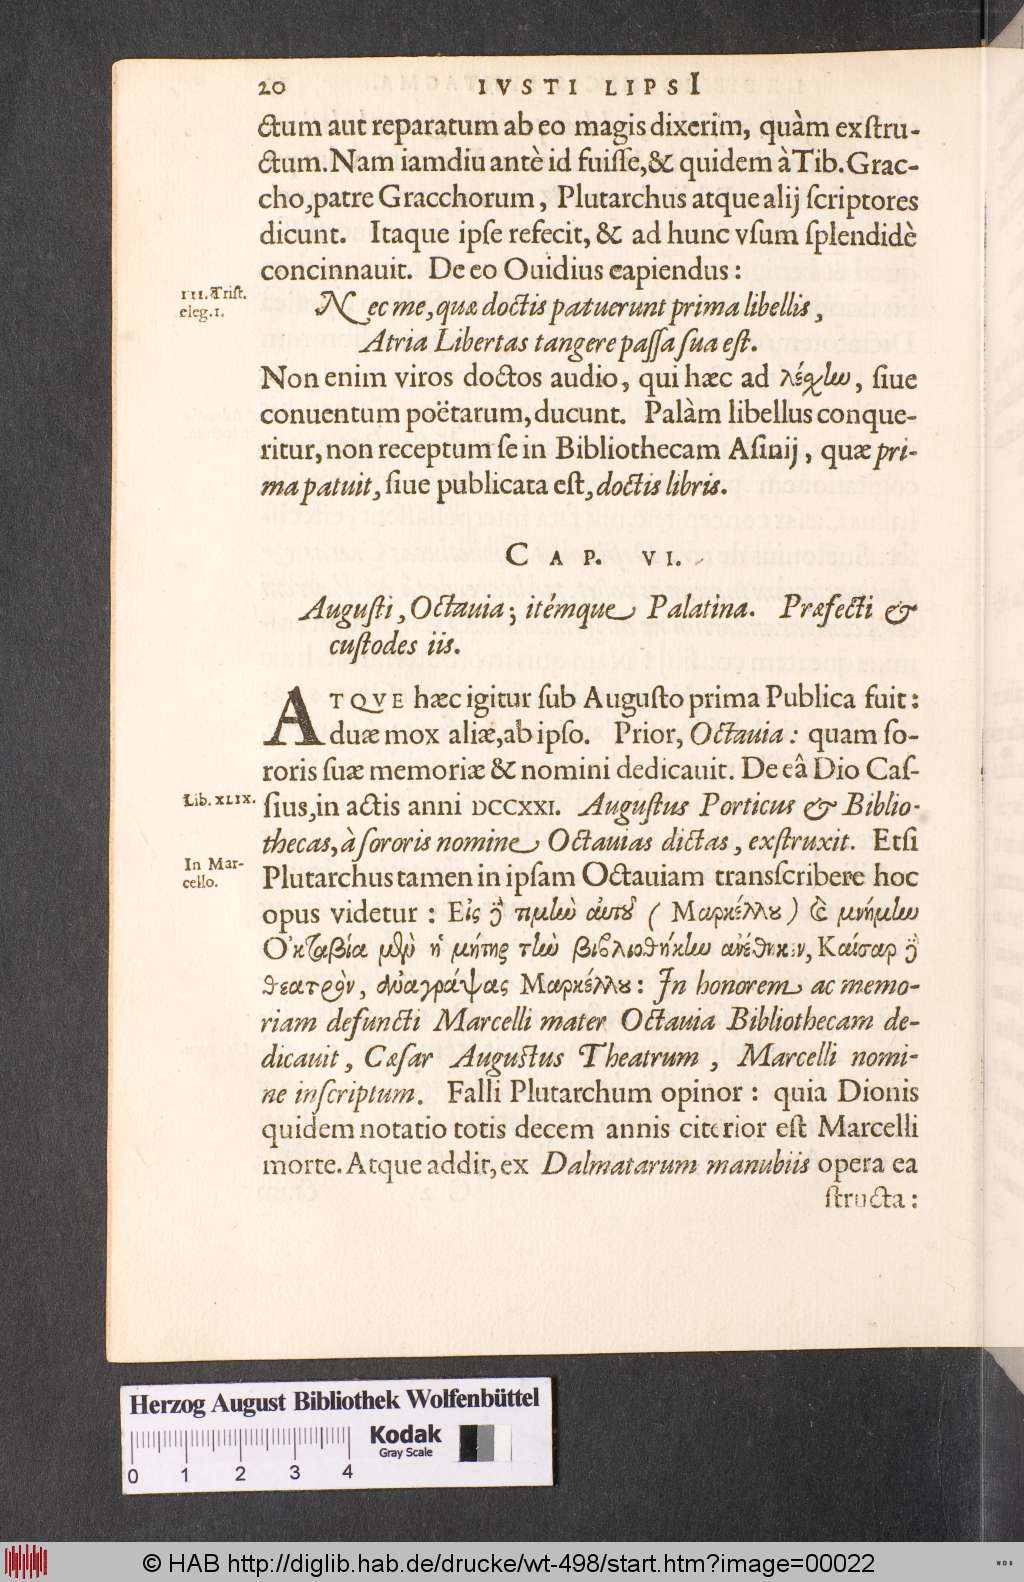 20 IVSTI LIPSI
ctum aut reparatum ab eo magis dixerim, quàm exſtru-
ctum. Nam iamdiu antè id fuiſſe, & quidem à Tib. Grac-
cho, patre Gracchorum, Plutarchus atque alij ſcriptores
dicunt. Itaque ipſe refecit, & ad hunc vſum ſplendidè
concinnauit. De eo Ouidius capiendus:
III. Triſt.
eleg. 1.
Nec me, quæ doctis patuerunt prima libellis,
Atria Libertas tangere paſſa ſua eſt.
Non enim viros doctos audio, qui hæc ad λέχλω, ſiue
conuentum poëtarum, ducunt. Palàm libellus conque-
ritur, non receptum ſe in Bibliothecam Aſinij, quæ pri-
ma patuit, ſiue publicata eſt, doctis libris.
CAP. VI.
Auguſti, Octauia; itémque Palatina. Præfecti &
cuſtodes iis.
ATQVE hæc igitur ſub Auguſto prima Publica fuit:
duæ mox aliæ, ab ipſo. Prior, Octauia: quam ſo-
roris ſuæ memoriæ & nomini dedicauit. De eâ Dio Caſ-
Lib. XLIX.
ſius, in actis anni DCCXXI. Auguſtus Porticus & Biblio-
thecas, à ſororis nomine Octauias dictas, exſtruxit. Etſi
In Mar-
cello.
Plutarchus tamen in ipſam Octauiam transſcribere hoc
opus videtur: Εἰς ϳ τιμὼ αὐτοῦ (Μαρκέλλου) καὶ μνήμὼ
Ὀκταβία μὲν ἡ μήτηρ τὼ βιβλιοθήκὼ ἀνέθηκεν, Καίσαρ δὲ
θεατρὸν, ἀναγράψας Μαρκέλλου: In honorem ac memo-
riam defuncti Marcelli mater Octauia Bibliothecam de-
dicauit, Cæſar Auguſtus Theatrum, Marcelli nomi-
ne inſcriptum. Falli Plutarchum opinor: quia Dionis
quidem notatio totis decem annis citerior eſt Marcelli
morte. Atque addit, ex Dalmatarum manubiis opera ea
ſtructa:
Herzog August Bibliothek Wolfenbüttel
Kodak
Gray Scale
0 1 2 3 4
© HAB http://diglib.hab.de/drucke/wt-498/start.htm?image=00022